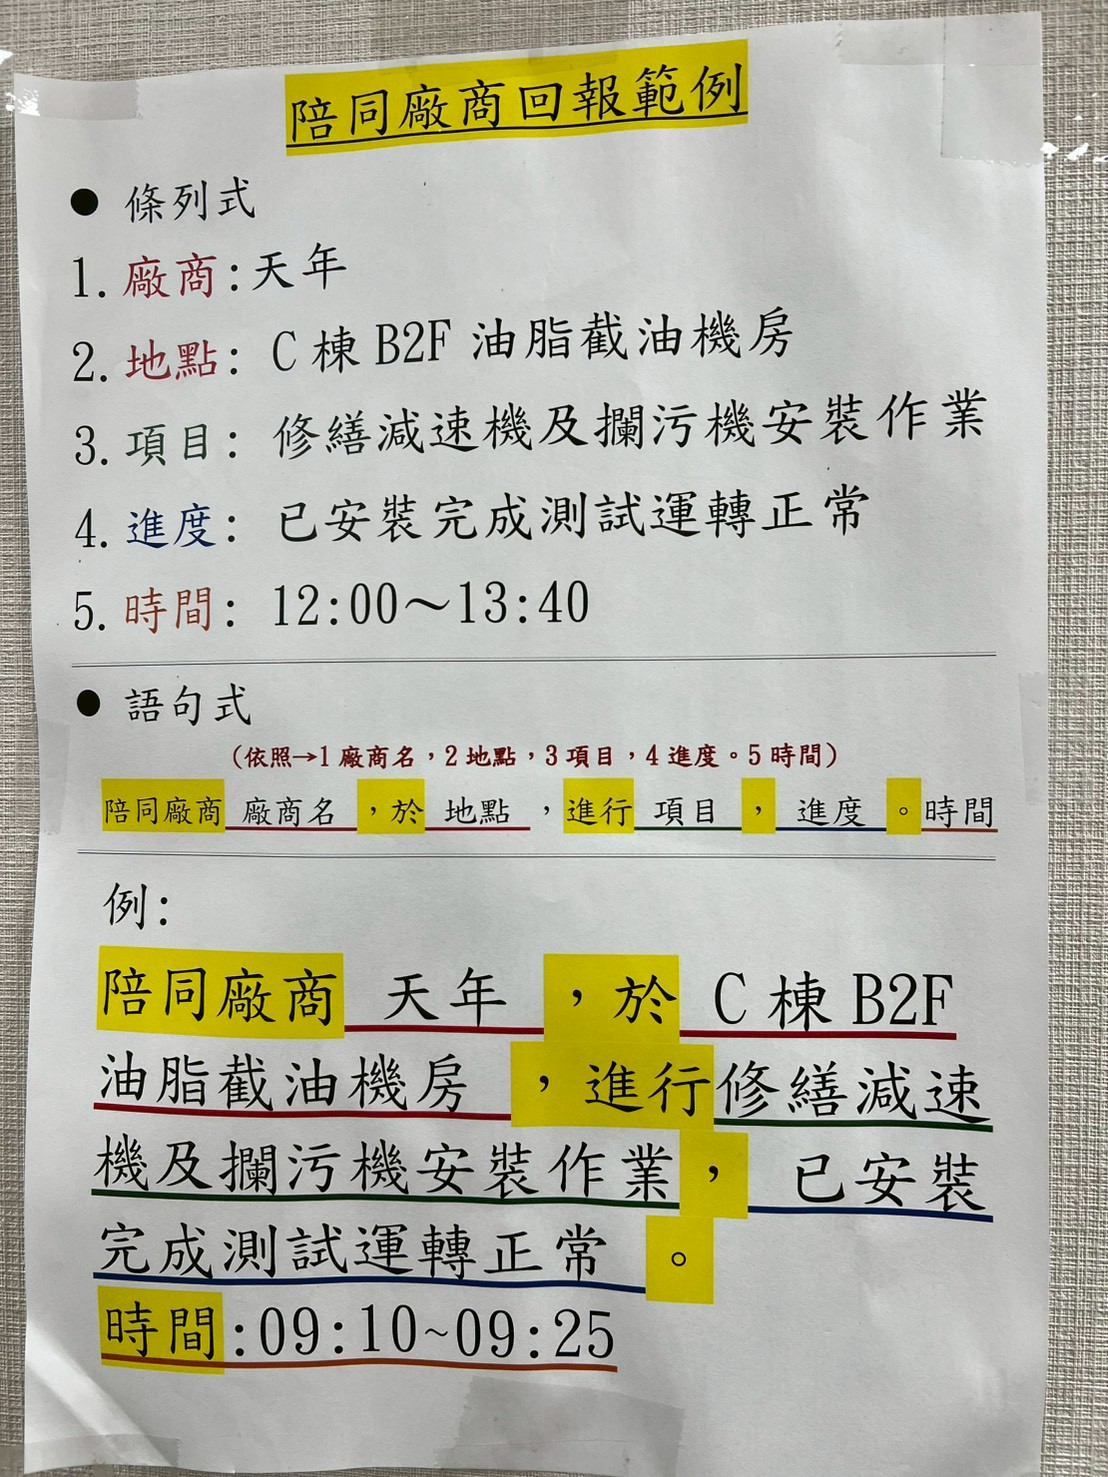 陪同廠商回報範例
● 條列式
1. 廠商:天年
2. 地點: C 棟 B2F 油脂截油機房
3. 項目: 修繕減速機及攔污機安裝作業
4. 進度: 已安裝完成測試運轉正常
5. 時間: 12:00～13:40
● 語句式
(依照→1 廠商名，2 地點，3 項目，4 進度。5 時間)
陪同廠商 廠商名 ，於 地點 ，進行 項目 ， 進度 。時間
例:
陪同廠商 天年 ，於 C 棟 B2F
油脂截油機房 ，進行修繕減速
機及攔污機安裝作業， 已安裝
完成測試運轉正常 。
時間:09:10~09:25